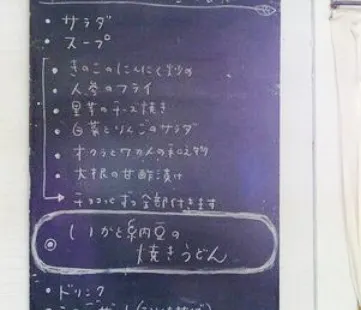 ・サラダ
・スープ
・きのこのにんにく炒め
・人参のフライ
・里芋のチーズ焼き
・白菜とりんごのサラダ
・オクラとワカメの和え物
・大根の甘酢漬け
全部付きます
いかと納豆の
焼きうどん
・ドリンク